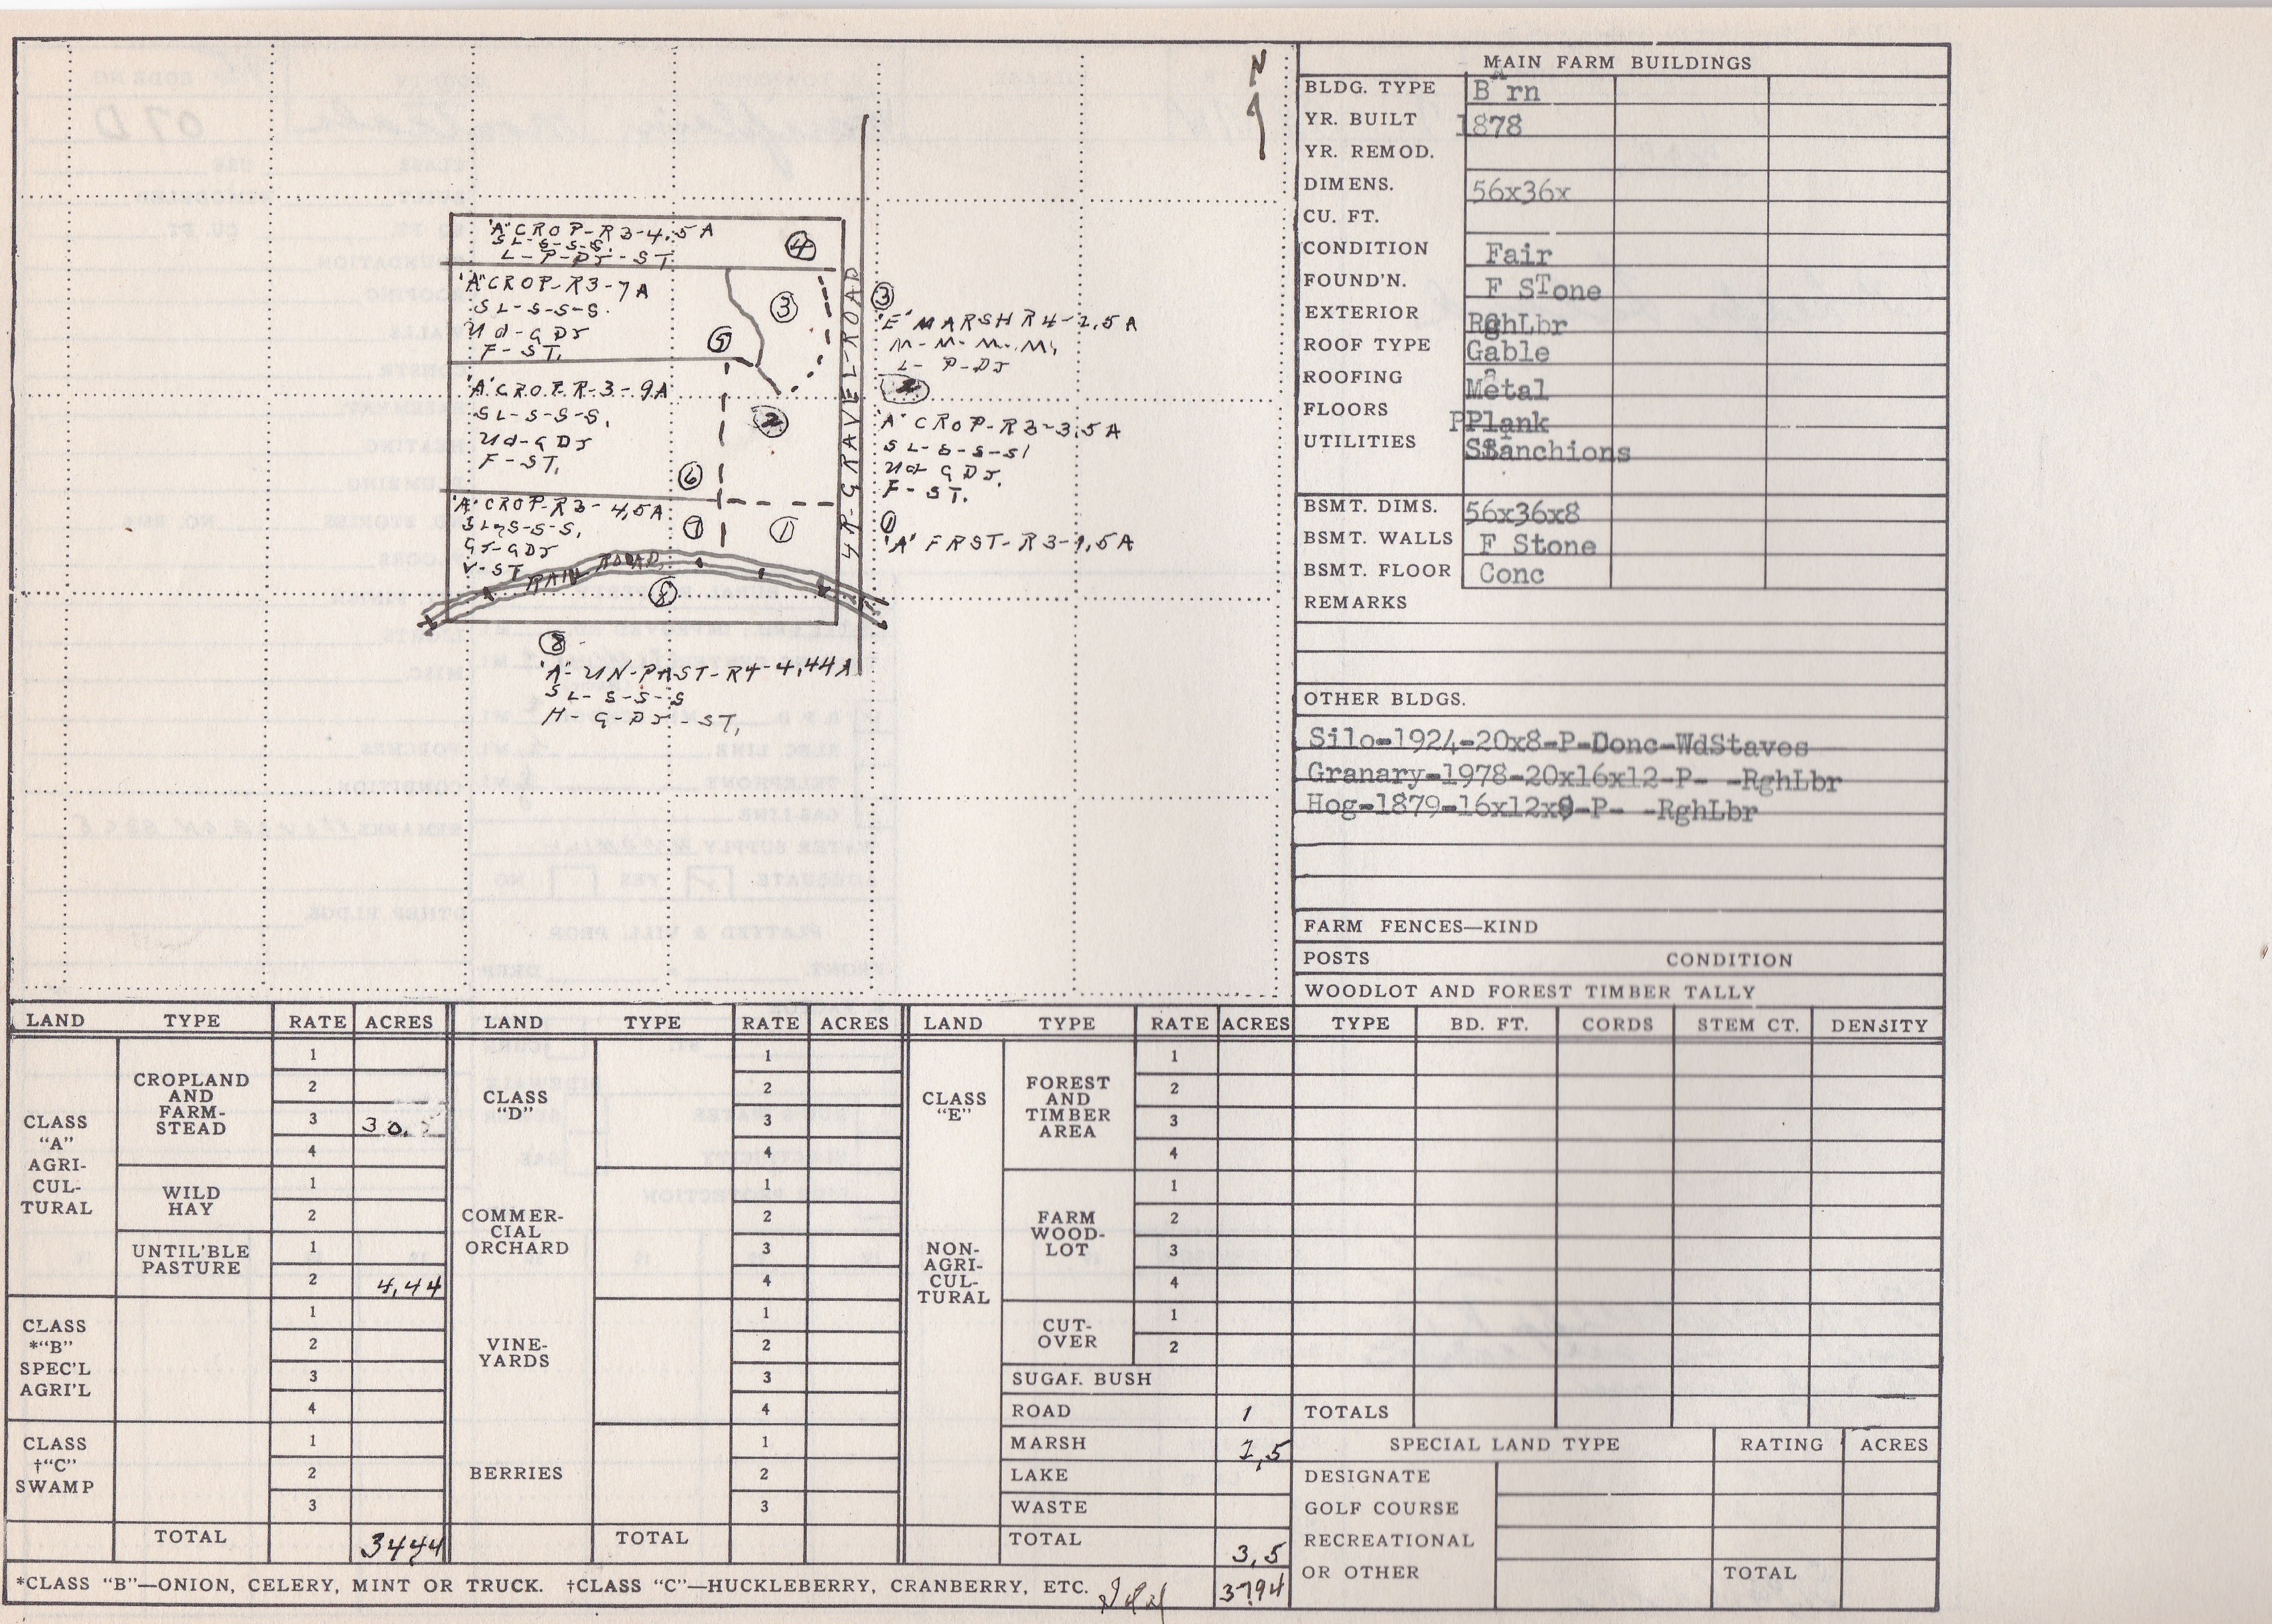 N
'A' CROP-R3-4,5A
SL-S-S-S.
L-P-DR-ST
4
'A' CROP-R3-7A
SL-S-S-S.
Ud-G DR
F-ST.
3
5
'A' CROP-R-3-9A
SL-S-S-S,
Ud-G DR
F-ST,
2
6
'A' CROP-R3-4,5A
SL-S-S-S,
GR-GDR
V-ST
7
1
RAIL ROAD
8
4R-GRAVEL-ROAD
3
'E' MARSH R4-2,5A
M-M-M-M,
L-P-DR
2
'A' CROP-R3-3,5A
SL-S-S-S
Ud G DR,
F-ST,
1
'A' FRST-R3-1,5A
8
'A'-UN-PAST-R4-4,44A
SL-S-S-S
H-G-DR-ST,
MAIN FARM BUILDINGS
BLDG. TYPE BArn
YR. BUILT 1878
YR. REMOD.
DIMENS. 56x36x
CU. FT.
CONDITION Fair
FOUND'N. F STone
EXTERIOR RghLbr
ROOF TYPE Gable
ROOFING Metal
FLOORS PPlank
UTILITIES Stanchions
BSMT. DIMS. 56x36x8
BSMT. WALLS F Stone
BSMT. FLOOR Conc
REMARKS
OTHER BLDGS.
Silo-1924-20x8-P-Donc-WdStaves
Granary-1978-20x16x12-P- -RghLbr
Hog-1879-16x12x8-P- -RghLbr
FARM FENCES—KIND
POSTS CONDITION
WOODLOT AND FOREST TIMBER TALLY
TYPE BD. FT. CORDS STEM CT. DENSITY
TOTALS
LAND TYPE RATE ACRES
CLASS "A" AGRI-CUL-TURAL
CROPLAND AND FARM-STEAD
1
2
3 30.
4
WILD HAY
1
2
UNTIL'BLE PASTURE
1
2 4,44
CLASS *"B" SPEC'L AGRI'L
1
2
3
4
CLASS †"C" SWAMP
1
2
3
TOTAL 3444
LAND TYPE RATE ACRES
CLASS "D"
1
2
3
4
COMMER-CIAL ORCHARD
1
2
3
4
VINE-YARDS
1
2
3
4
BERRIES
1
2
3
TOTAL
LAND TYPE RATE ACRES
CLASS "E"
NON-AGRI-CUL-TURAL
FOREST AND TIMBER AREA
1
2
3
4
FARM WOOD-LOT
1
2
3
4
CUT-OVER
1
2
SUGAR BUSH
ROAD 1
MARSH 2,5
LAKE
WASTE
TOTAL 3,5
3794
SPECIAL LAND TYPE RATING ACRES
DESIGNATE
GOLF COURSE
RECREATIONAL
OR OTHER TOTAL
*CLASS "B"—ONION, CELERY, MINT OR TRUCK. †CLASS "C"—HUCKLEBERRY, CRANBERRY, ETC.